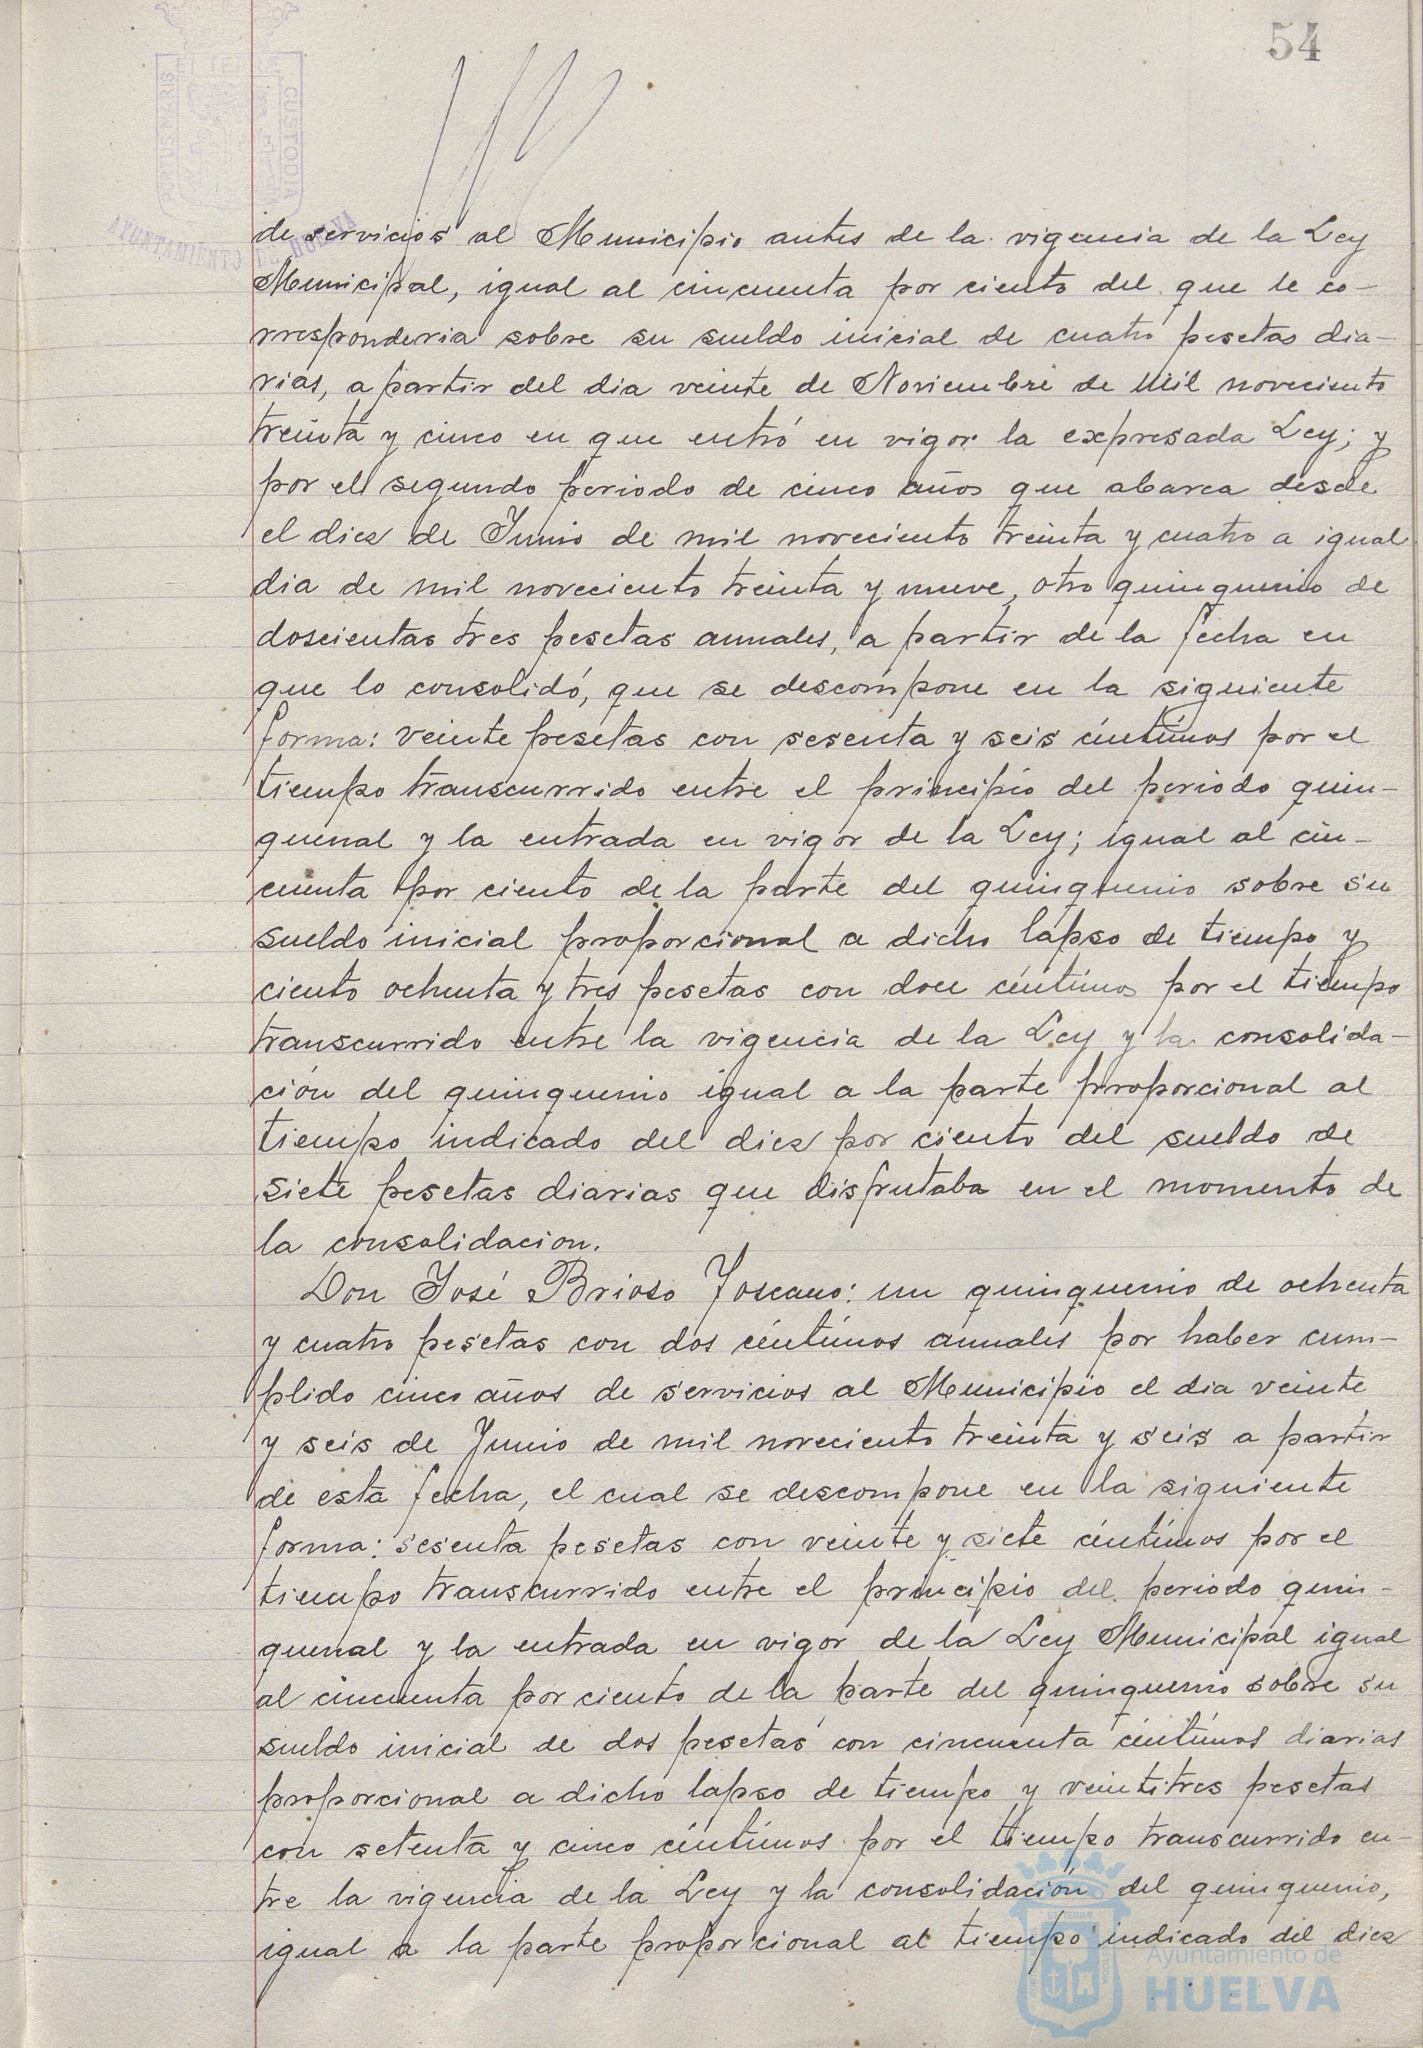 54
PORTUS MARIS
ET TERRÆ
CUSTODIA
AYUNTAMIENTO DE HUELVA
de servicios al Municipio antes de la vigencia de la Ley
Municipal, igual al cincuenta por ciento del que le co-
rresponderia sobre su sueldo inicial de cuatro pesetas dia-
rias, a partir del dia veinte de Noviembre de mil novecientos
treinta y cinco en que entró en vigor la expresada Ley; y
por el segundo periodo de cinco años que abarca desde
el diez de Junio de mil novecientos treinta y cuatro a igual
dia de mil novecientos treinta y nueve, otro quinquenio de
doscientas tres pesetas anuales, a partir de la fecha en
que lo consolidó, que se descompone en la siguiente
forma: veinte pesetas con sesenta y seis céntimos por el
tiempo transcurrido entre el principio del periodo quin-
quenal y la entrada en vigor de la Ley; igual al cin-
cuenta por ciento de la parte del quinquenio sobre su
sueldo inicial proporcional a dicho lapso de tiempo y
ciento ochenta y tres pesetas con doce céntimos por el tiempo
transcurrido entre la vigencia de la Ley y la consolida-
ción del quinquenio igual a la parte proporcional al
tiempo indicado del diez por ciento del sueldo de
siete pesetas diarias que disfrutaba en el momento de
la consolidacion.
Don José Brioso Toscano: un quinquenio de ochenta
y cuatro pesetas con dos céntimos anuales por haber cum-
plido cinco años de servicios al Municipio el dia veinte
y seis de Junio de mil novecientos treinta y seis a partir
de esta fecha, el cual se descompone en la siguiente
forma: sesenta pesetas con veinte y siete céntimos por el
tiempo transcurrido entre el principio del periodo quin-
quenal y la entrada en vigor de la Ley Municipal igual
al cincuenta por ciento de la parte del quinquenio sobre su
sueldo inicial de dos pesetas con cincuenta céntimos diarias
proporcional a dicho lapso de tiempo y veintitres pesetas
con setenta y cinco céntimos por el tiempo transcurrido en-
tre la vigencia de la Ley y la consolidación del quinquenio,
igual a la parte proporcional al tiempo indicado del diez
Ayuntamiento de
HUELVA